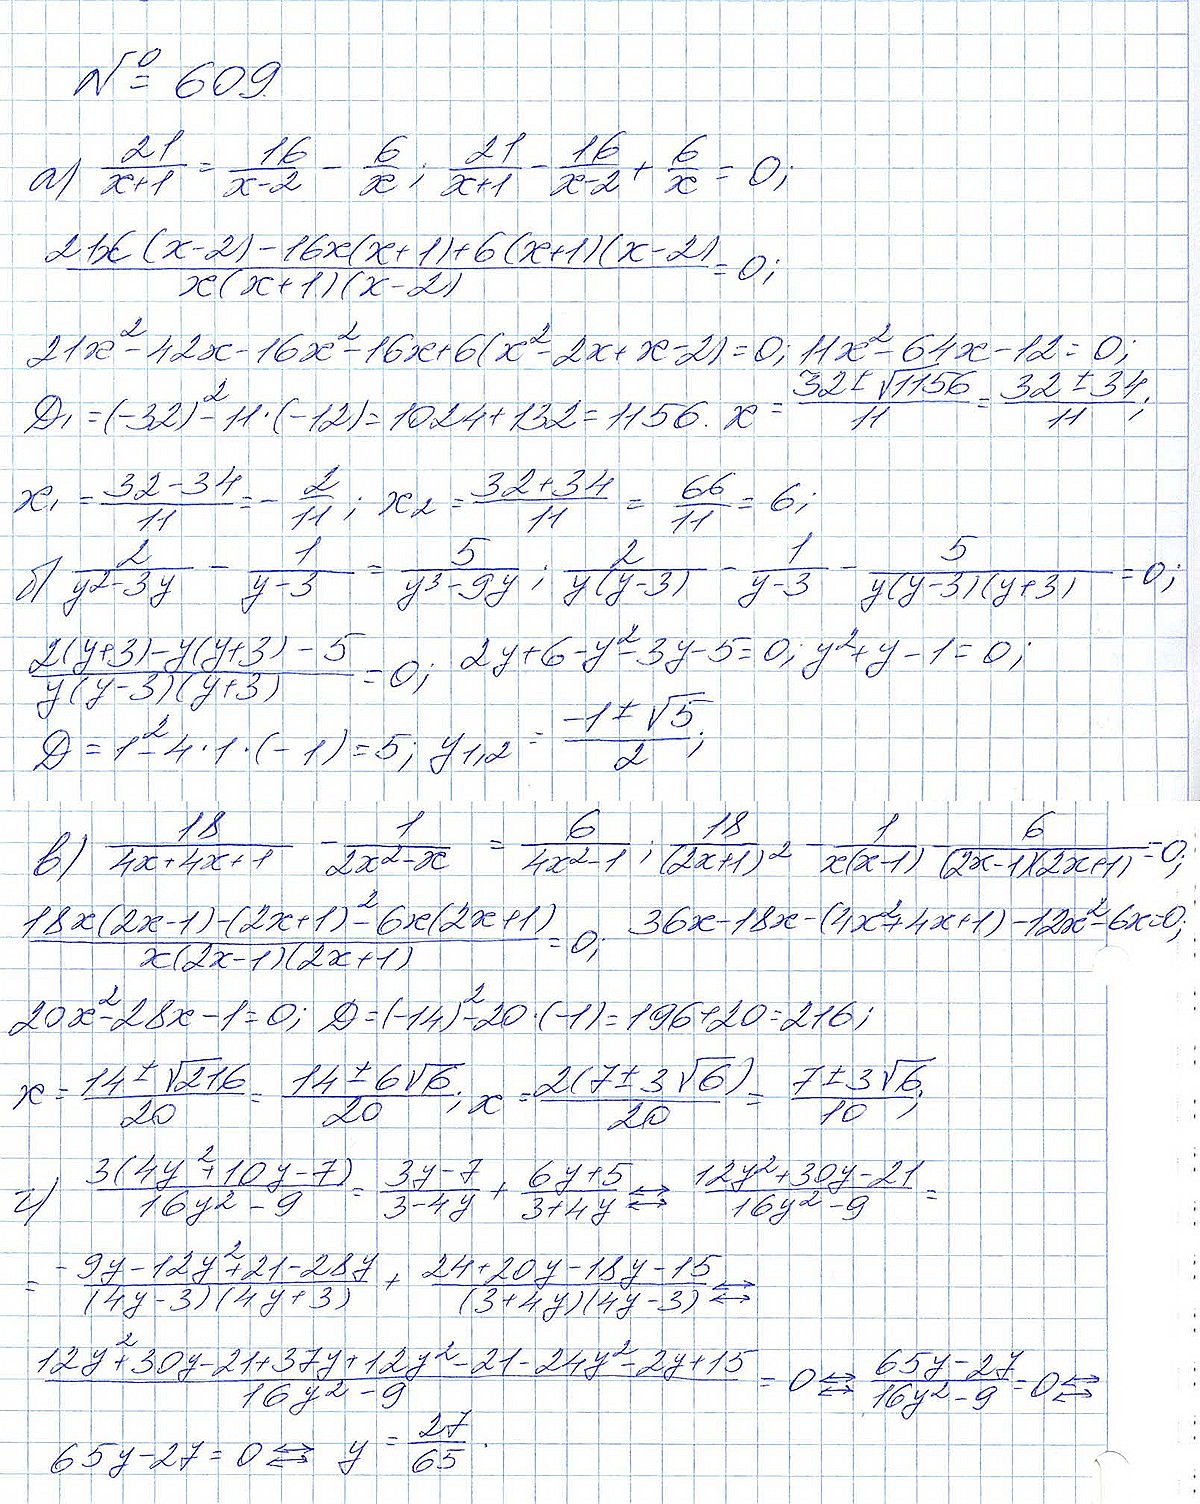 № 609.
а) 21/(x+1) = 16/(x-2) - 6/x; 21/(x+1) - 16/(x-2) + 6/x = 0;
(21x(x-2)-16x(x+1)+6(x+1)(x-2))/(x(x+1)(x-2)) = 0;
21x²-42x-16x²-16x+6(x²-2x+x-2)=0; 11x²-64x-12=0;
D₁=(-32)²-11·(-12)=1024+132=1156. x = (32±√1156)/11 = (32±34)/11;
x₁ = (32-34)/11 = -2/11; x₂ = (32+34)/11 = 66/11 = 6;
б) 2/(y²-3y) - 1/(y-3) = 5/(y³-9y); 2/(y(y-3)) - 1/(y-3) - 5/(y(y-3)(y+3)) = 0;
(2(y+3)-y(y+3)-5)/(y(y-3)(y+3)) = 0; 2y+6-y²-3y-5=0; y²+y-1=0;
D=1²-4·1·(-1)=5; y₁,₂ = (-1±√5)/2;
в) 18/(4x+4x+1) - 1/(2x²-x) = 6/(4x²-1); 18/(2x+1)² - 1/(x(x-1)) - 6/((2x-1)(2x+1)) = 0;
(18x(2x-1)-(2x+1)²-6x(2x+1))/(x(2x-1)(2x+1)) = 0; 36x-18x-(4x²+4x+1)-12x²-6x=0;
20x²-28x-1=0; D=(-14)²-20·(-1)=196+20=216;
x = (14±√216)/20 = (14±6√6)/20; x = (2(7±3√6))/20 = (7±3√6)/10;
г) (3(4y²+10y-7))/(16y²-9) = (3y-7)/(3-4y) + (6y+5)/(3+4y) ⇔ (12y²+30y-21)/(16y²-9) =
= (-9y-12y²+21-28y)/((4y-3)(4y+3)) + (24+20y-18y-15)/((3+4y)(4y-3)) ⇔
(12y²+30y-21+37y+12y²-21-24y²-2y+15)/(16y²-9) = 0 ⇔ (65y-27)/(16y²-9) = 0 ⇔
65y-27=0 ⇔ y = 27/65.